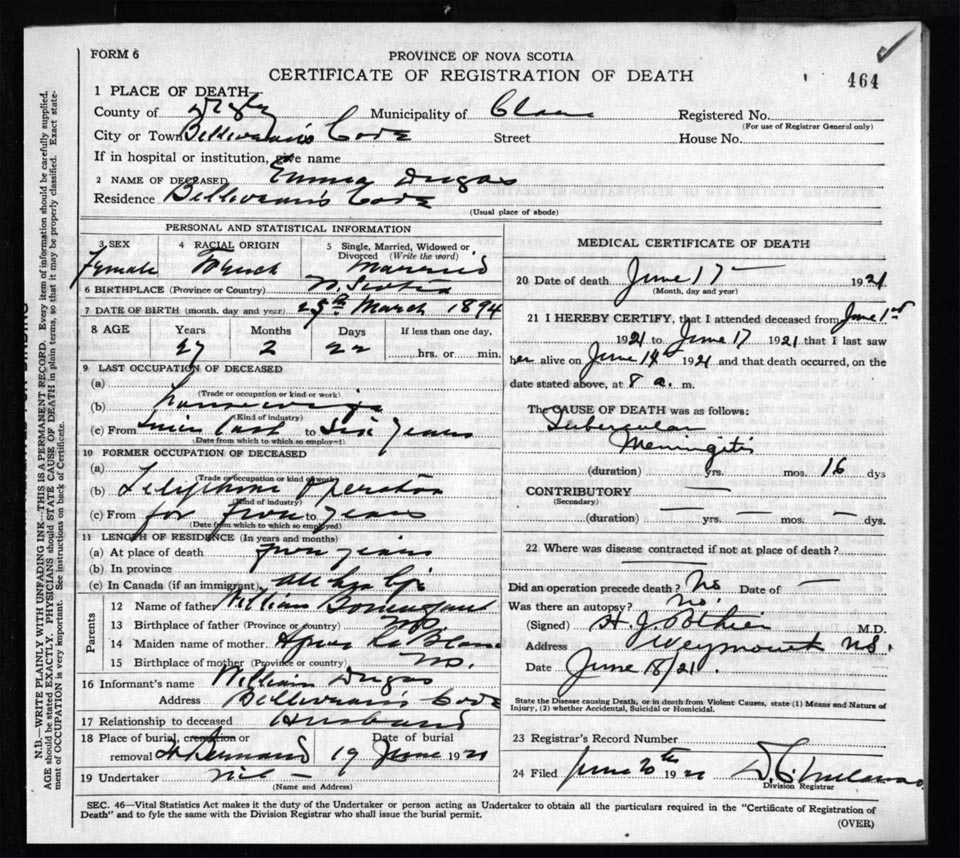 FORM 6
PROVINCE OF NOVA SCOTIA
CERTIFICATE OF REGISTRATION OF DEATH
464
1 PLACE OF DEATH
County of Digby Municipality of Clare Registered No.
(For use of Registrar General only)
City or Town Belliveau's Cove Street House No.
If in hospital or institution, give name
2 NAME OF DECEASED Emma Dugas
Residence Belliveau's Cove
(Usual place of abode)
PERSONAL AND STATISTICAL INFORMATION
3 SEX 4 RACIAL ORIGIN 5 Single, Married, Widowed or Divorced (Write the word)
Female French Married
6 BIRTHPLACE (Province or Country) N. Scotia
7 DATE OF BIRTH (month, day and year) March 1894
8 AGE Years Months Days If less than one day,
27 2 22 hrs. or min.
9 LAST OCCUPATION OF DECEASED
(a)
(Trade or occupation or kind of work)
(b) housewife
(Kind of industry)
(c) From since last to six years
(Date from which to which so employed)
10 FORMER OCCUPATION OF DECEASED
(a)
(Trade or occupation or kind of work)
(b) Telephone operator
(Kind of industry)
(c) From for to years
(Date from which to which so employed)
11 LENGTH OF RESIDENCE (In years and months)
(a) At place of death years
(b) In province
(c) In Canada (if an immigrant) all her life
Parents
12 Name of father William
13 Birthplace of father (Province or country) N.S.
14 Maiden name of mother LeBlanc
15 Birthplace of mother (Province or country) N.S.
16 Informant's name William Dugas
Address Belliveau's Cove
17 Relationship to deceased Husband
18 Place of burial, cremation or removal Date of burial
19 June 1921
19 Undertaker nil
(Name and Address)
MEDICAL CERTIFICATE OF DEATH
20 Date of death June 17 1921
(Month, day and year)
21 I HEREBY CERTIFY, that I attended deceased from June 1st
1921 to June 17 1921 that I last saw
her alive on June 14th 1921 and that death occurred, on the
date stated above, at 8 a. m.
The CAUSE OF DEATH was as follows:
Tubercular
Meningitis
(duration) yrs. mos. 16 dys
CONTRIBUTORY
(Secondary)
(duration) yrs. mos. dys.
22 Where was disease contracted if not at place of death?
Did an operation precede death? No Date of
Was there an autopsy? No.
(Signed) H. J. Pothier M.D.
Address Weymouth N.S.
Date June 18/21.
State the Disease causing Death, or in death from Violent Causes, state (1) Means and Nature of
Injury, (2) whether Accidental, Suicidal or Homicidal.
23 Registrar's Record Number
24 Filed June 20th 1921
Division Registrar
SEC. 46—Vital Statistics Act makes it the duty of the Undertaker or person acting as Undertaker to obtain all the particulars required in the "Certificate of Registration of
Death" and to fyle the same with the Division Registrar who shall issue the burial permit.
(OVER)
N.B.—WRITE PLAINLY WITH UNFADING INK—THIS IS A PERMANENT RECORD. Every item of information should be carefully supplied.
AGE should be stated EXACTLY. PHYSICIANS should STATE CAUSE OF DEATH in plain terms, so that it may be properly classified. Exact state-
ment of OCCUPATION is very important. See instructions on back of Certificate.